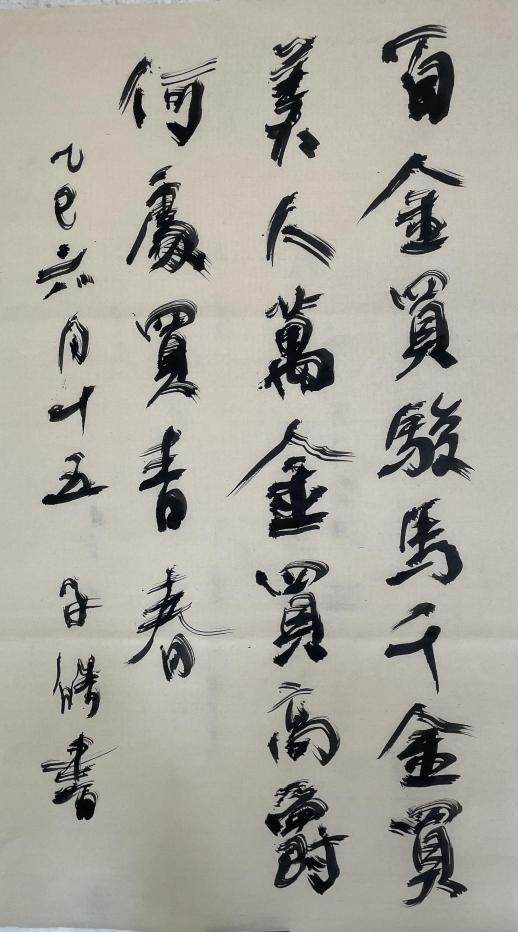 百金買駿馬千金買
美人萬金買高爵
何處買青春
乙巳六月十五 子勝書